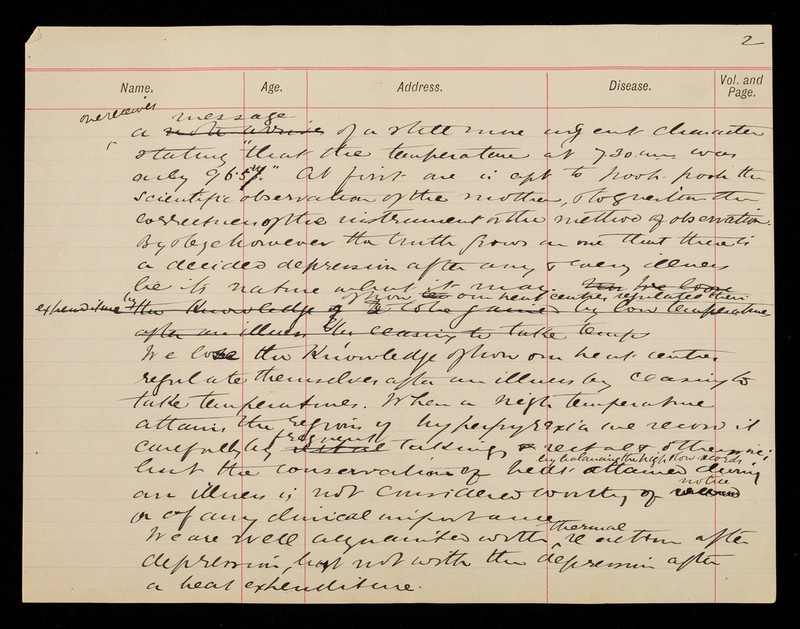 2
Name. Age. Address. Disease. Vol. and Page.
one receives message
a note arrives of a still more urgent character
stating "that the temperature at 7.30 a.m was
only 96.5°f." At first one is apt to pooh-pooh the
scientific observation of the mother, to question the
correctness of the instrument or the method of observation.
By & bye however the truth grows on one that there is
a decided depression after any & every illness
be its nature what it may. 
of how our heat centres regulate their
expenditure by the knowledge to be gained by low temperature
after an illness the ceasing to take temps
We lose the knowledge of how our heat centres
regulate themselves after an illness by ceasing to
take temperatures. When a high temperature
attains the regions of hyperpyrexia we record it
carefully by frequent taking, rectal & otherwise;
by balancing the high & low records
but the conservation of heat attained during
notice
an illness is not considered worthy of
or of any clinical importance.
thermal
We are well acquainted with reaction after
depression, but not with the depression after
a heat expenditure.